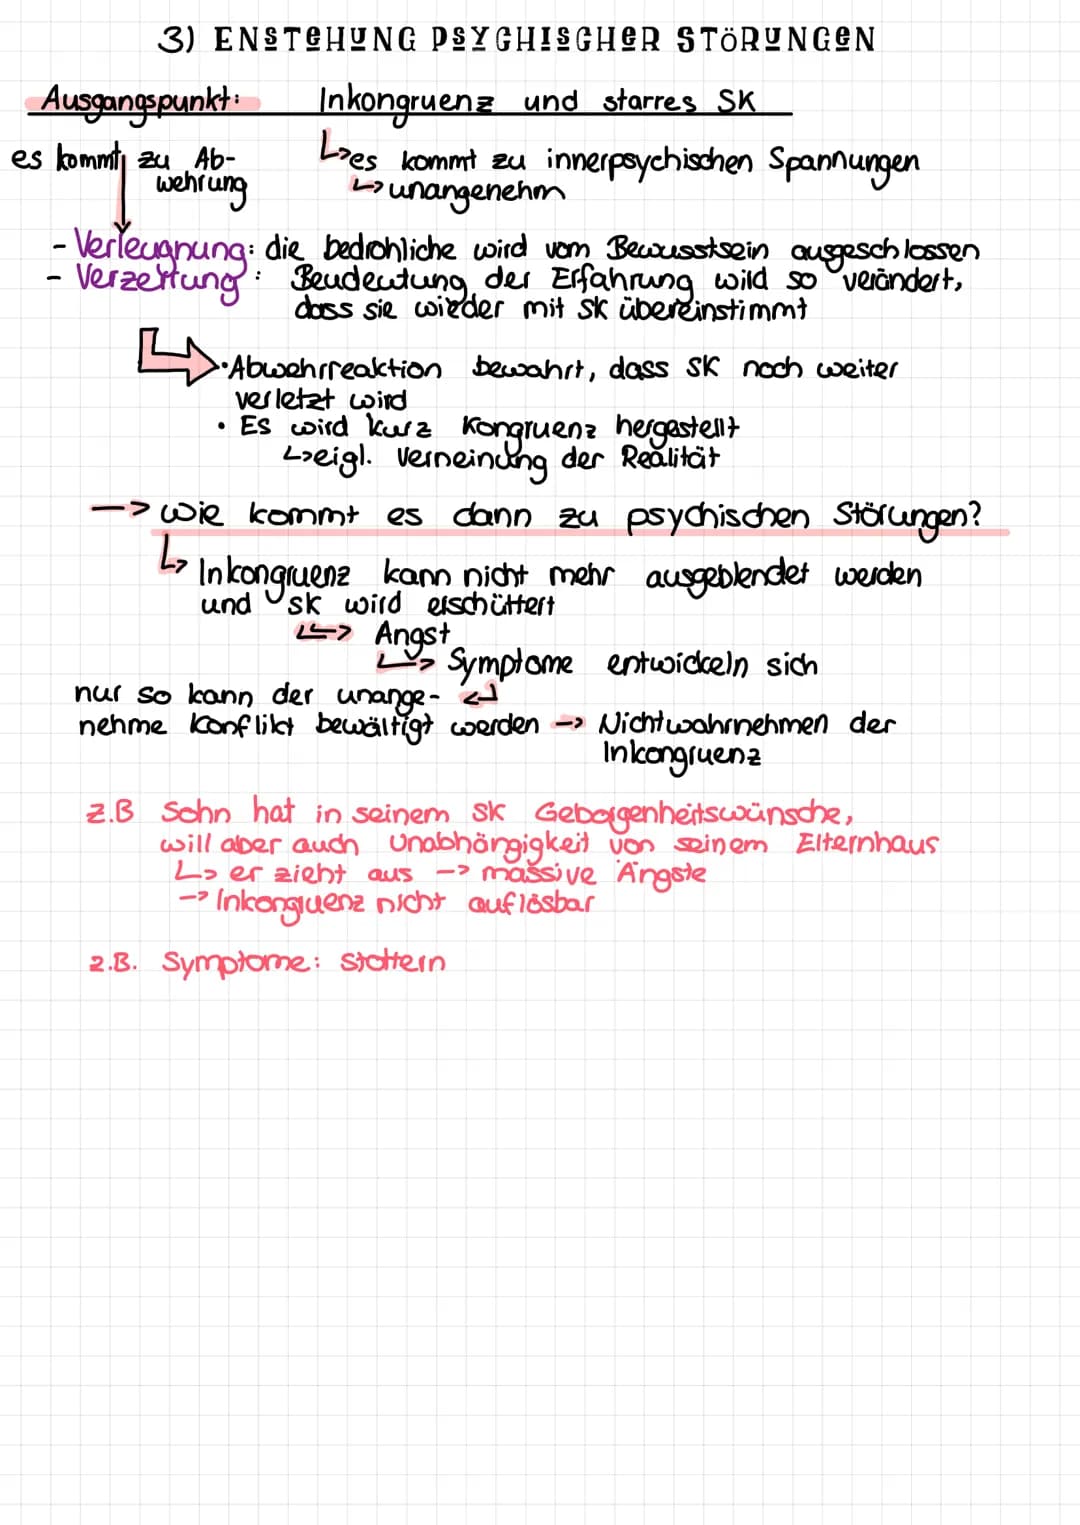 3) ENSTEHUNG PSYCHISCHER STÖRUNGEN
Ausgangspunkt: Inkongruenz und starres SK
es kommt zu Ab-
wehrung
↳ es kommt zu innerpsychischen Spannungen
↳ unangenehm
- Verleugnung: die bedrohliche wird vom Bewusstsein ausgeschlossen
- Verzerrung: Beudeutung der Erfahrung wild so verändert,
dass sie wieder mit SK übereinstimmt
• Abwehrreaktion bewahrt, dass SK noch weiter
verletzt wird
• Es wird kurz Kongruenz hergestellt
↳ eigl. Verneinung der Realität
→ wie kommt es dann zu psychischen Störungen?
↳ Inkongruenz kann nicht mehr ausgeblendet werden
und SK wird erschüttert
↳ Angst
↳ Symptome entwickeln sich
nur so kann der unange- ↲
nehme Konflikt bewältigt werden → Nichtwahrnehmen der
Inkongruenz
z.B Sohn hat in seinem SK Geborgenheitswünsche,
will aber auch Unabhängigkeit von seinem Elternhaus
↳ er zieht aus → massive Ängste
→ Inkongruenz nicht auflösbar
z.B. Symptome: stottern